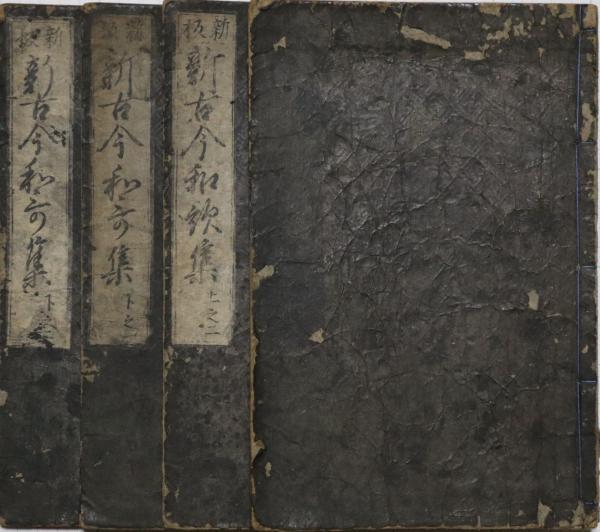 新板
新古今和歌集 上之二
新
新古今和可集 下之
新板
新古今和可集 下之